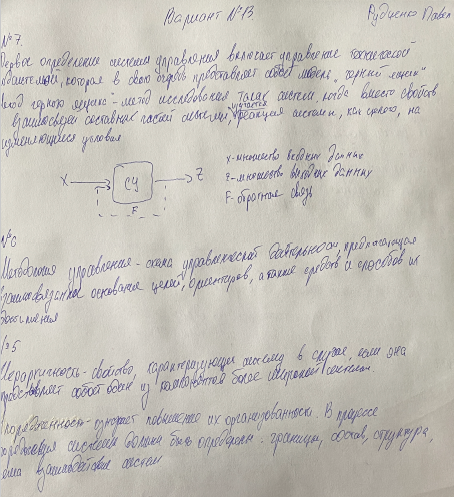 Вариант №13. Рудиенко Павел
№7.
Первое определение система управления включает управление технической
которая в свою очередь представляет собой модель "черный ящик"
метод "черного ящика" - метод исследования таких систем, когда вместо свойств
и взаимосвязи составных частей системы, изучается реакция системы, как целого, на
изменяющиеся условия
X СУ Z
F
x - множество входных данных
z - множество выходных данных
F - обратная связь
№6
Методология управления - схема управленческой деятельности, предполагающая
взаимосвязанное основание целей, ориентиров, а также средств и способов их
достижения
№5
Иерархичность - свойство, характеризующее систему в случае, если она
представляет собой один из компонентов более широкой системы.
Упорядоченность - означает повышение их организованность. В процессе
системы должна быть определены - границы, состав, структура,
взаимодействия систем